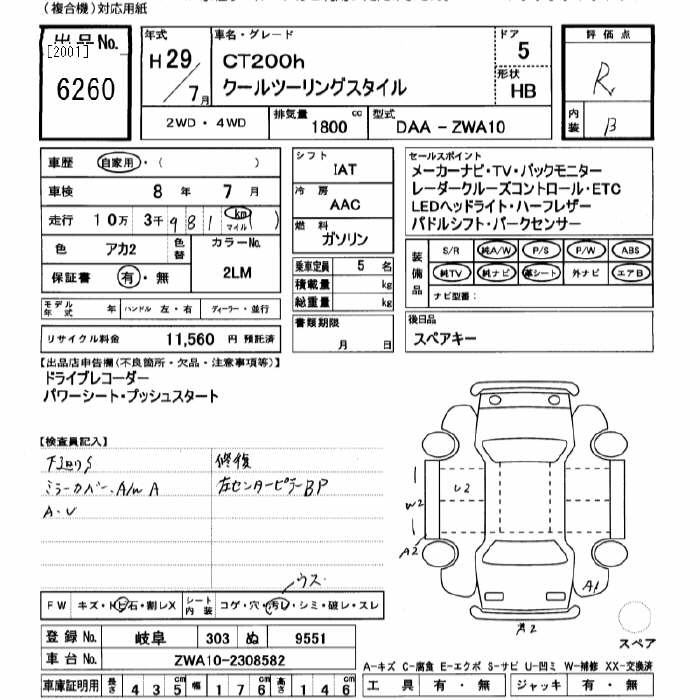 (複合機)対応用紙
出品No.
[2001]
6260
年式
H29/7月
車名・グレード
CT200h
クールツーリングスタイル
ドア
5
形状
HB
評価点
R
内装
B
2WD・4WD
排気量
1800 cc
型式
DAA - ZWA10
車歴 自家用・( )
車検 8年 7月
走行 10万 3千 981 (km マイル)
色 アカ2
色替
カラーNo.
2LM
保証書 有・無
モデル年式 年 ハンドル 左・右 ディーラー・並行
リサイクル料金 11,560 円 預託済
シフト
IAT
冷房
AAC
燃料
ガソリン
乗車定員 5 名
積載量 kg
総重量 kg
書類期限
月 日
セールスポイント
メーカーナビ・TV・バックモニター
レーダークルーズコントロール・ETC
LEDヘッドライト・ハーフレザー
パドルシフト・パークセンサー
装備品
S/R 純A/W P/S P/W ABS
純TV 純ナビ 革シート 外ナビ エアB
ナビ型番:
後日品
スペアキー
【出品店申告欄(不良箇所・欠品・注意事項等)】
ドライブレコーダー
パワーシート・プッシュスタート
【検査員記入】
下回りS
ミラーカバー・A/W A
A・U
修復
左センターピラーBP
U2
W2
A2
A1
スペア
ウス
FW キズ・トビ石・割レX
シート内装 コゲ・穴・汚レ・シミ・破レ・スレ
登録No. 岐阜 303 ぬ 9551
車台No. ZWA10-2308582
車庫証明用 長さ 435 cm 幅 176 cm 高さ 146 cm
A-キズ C-腐食 E-エクボ S-サビ U-凹ミ W-補修 XX-交換済
工具 有・無 ジャッキ 有・無